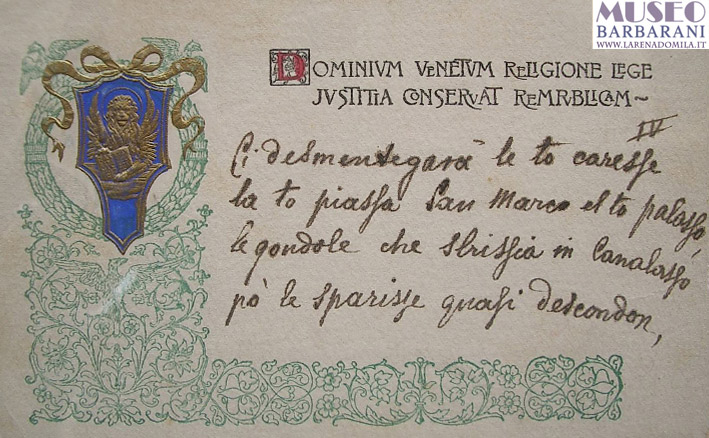 MUSEO
BARBARANI
WWW.LARENADOMILA.IT
DOMINIVM VENETVM RELIGIONE LEGE
JVSTITIA CONSERVAT REMPVBLICAM~
IV
Ci desmentegarà le to caresse
la to piassa San Marco el to palasso,
le gondole che sbrissia in Canalasso
pò le sparisse quasi descondon,